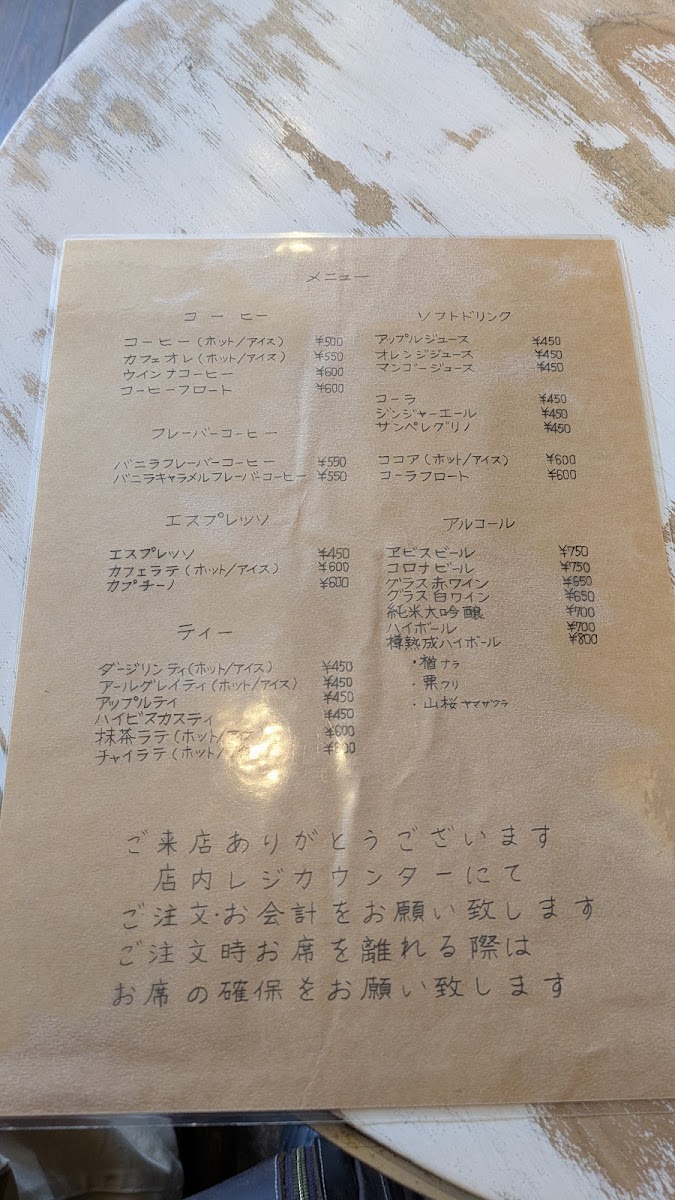 メニュー
コーヒー
コーヒー(ホット/アイス) ¥500
カフェオレ(ホット/アイス) ¥550
ウインナコーヒー ¥600
コーヒーフロート ¥600
フレーバーコーヒー
バニラフレーバーコーヒー ¥550
バニラキャラメルフレーバーコーヒー ¥550
エスプレッソ
エスプレッソ ¥450
カフェラテ(ホット/アイス) ¥600
カプチーノ ¥600
ティー
ダージリンティ(ホット/アイス) ¥450
アールグレイティ(ホット/アイス) ¥450
アップルティ ¥450
ハイビスカスティ ¥450
抹茶ラテ(ホット/アイス) ¥600
チャイラテ(ホット/アイス)
ソフトドリンク
アップルジュース ¥450
オレンジジュース ¥450
マンゴージュース ¥450
コーラ ¥450
ジンジャーエール ¥450
サンペレグリノ ¥450
ココア(ホット/アイス) ¥600
コーラフロート ¥600
アルコール
ヱビスビール ¥750
コロナビール ¥750
グラス赤ワイン ¥650
グラス白ワイン ¥650
純米大吟醸 ¥700
ハイボール ¥700
樽熟成ハイボール ¥800
・楢ナラ
・栗クリ
・山桜ヤマザクラ
ご来店ありがとうございます
店内レジカウンターにて
ご注文・お会計をお願い致します
ご注文時お席を離れる際は
お席の確保をお願い致します